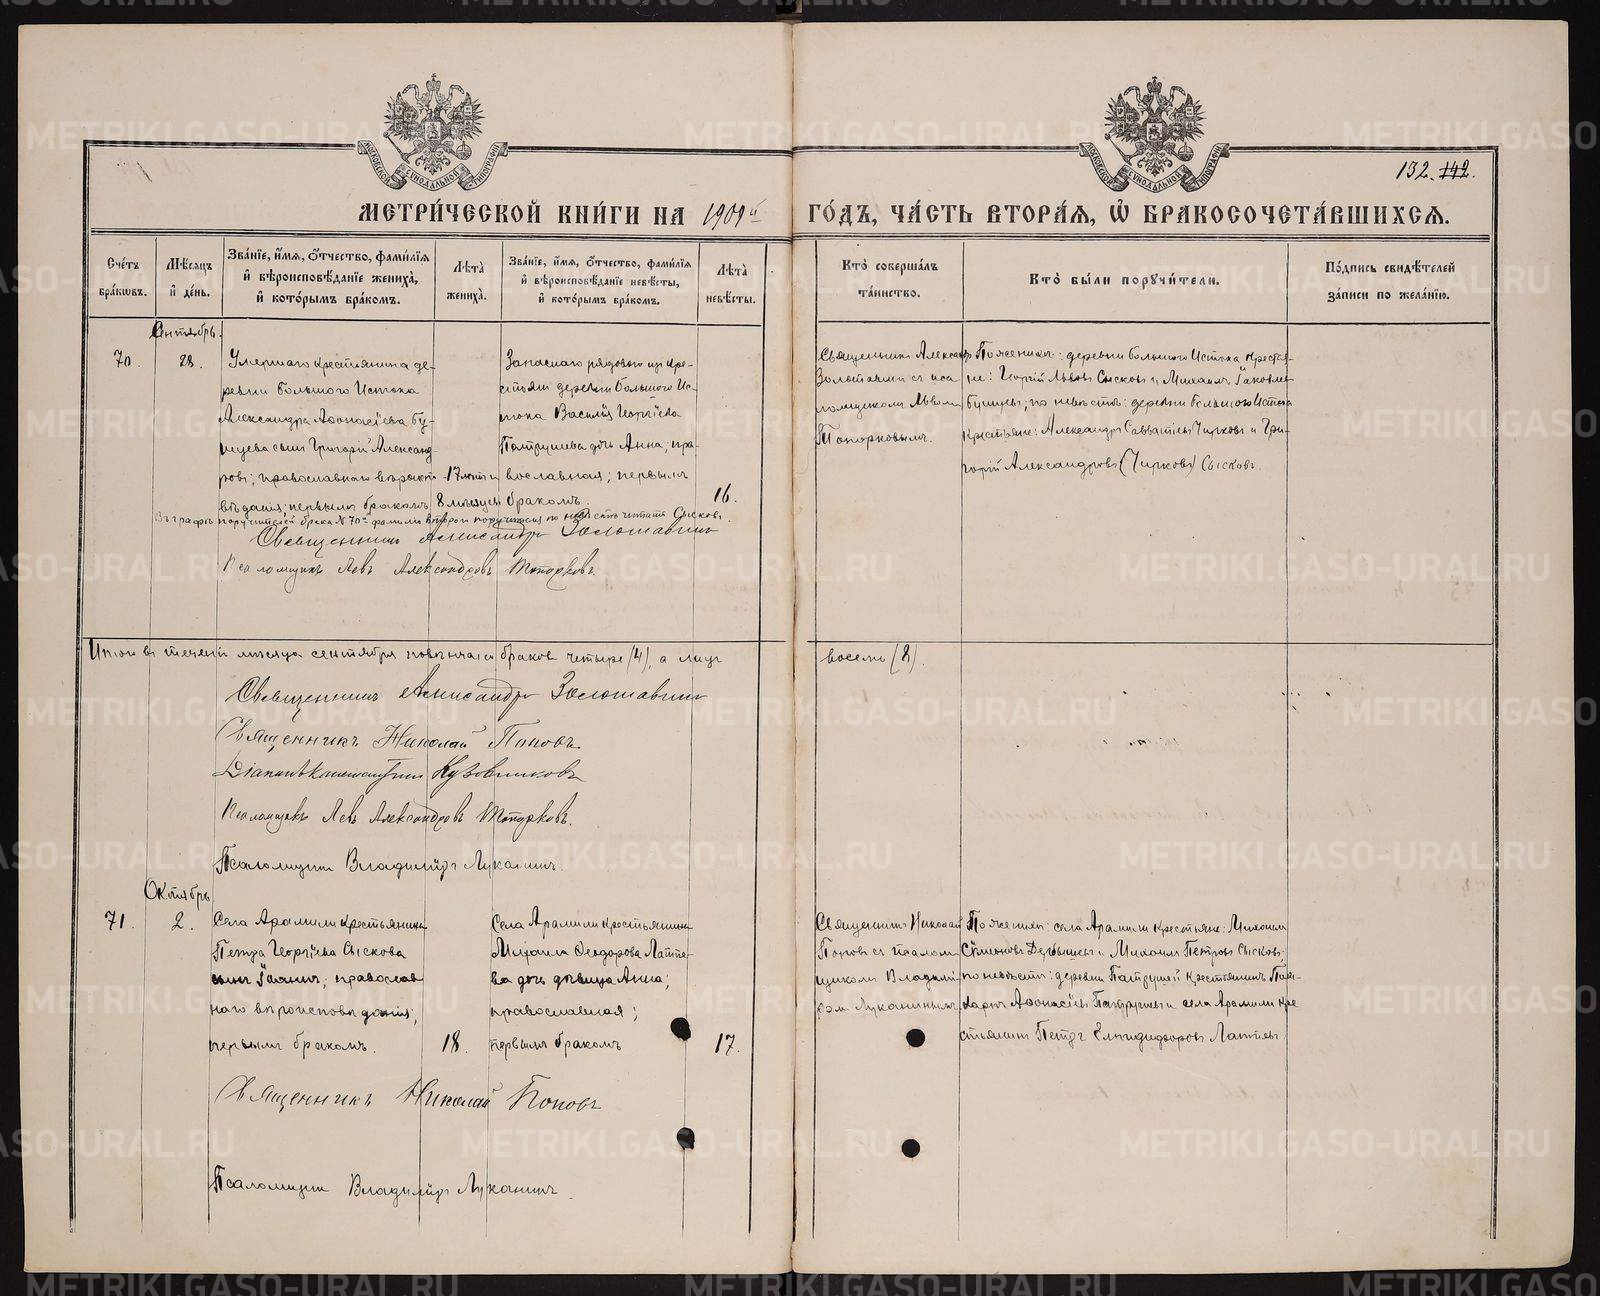 132. 142.
МЕТРИ́ЧЕСКОЙ КНИ́ГИ НА 1909й ГО́ДЪ, ЧА́СТЬ ВТОРА́Я, Ѡ БРАКОСОЧЕТА́ВШИХСЯ.
Сче́тъ бра́кωвъ.
Мѣ́сяцъ и҆ де́нь.
Зва́нїе, и҆́мя, ѻ҆́тчество, фами́лїя
и҆ вѣроисповѣ́данїе жениха̀,
и҆ кото́рымъ бра́комъ.
Лѣ́та жениха̀.
Зва́нїе, и҆́мя, ѻ҆́тчество, фами́лїя
и҆ вѣроисповѣ́данїе невѣ́сты,
и҆ кото́рымъ бра́комъ.
Лѣ́та невѣ́сты.
Кто̀ соверша́лъ
та́инство.
Кто̀ бы́ли поручи́тели.
По́дпись свидѣ́телей
за́писи по жела́нїю.
Сентябрь.
70.
28.
Умершаго крестьянина де-
ревни Большого Истока
Александра Афонасіева Бу-
шуева сынъ Григорій Александ-
ровъ; православнаго вѣроиспо-
вѣданія; первымъ бракомъ.
17 лѣтъ и
8 мѣсяцевъ
Запаснаго рядового изъ кре-
стьянъ деревни Большого Ис-
тока Василія Георгіева
Патрушева дочь Анна; пра-
вославная; первымъ
бракомъ.
16.
Священникъ Александръ
Золотавинъ съ пса-
ломщикомъ Львомъ
Топорковымъ.
По женихѣ: деревни Большого Истока крестья-
не: Георгій Львовъ Сысковъ и Михаилъ Іаковлевъ
Бушуевъ; по невѣстѣ: деревни Большого Истока
крестьяне: Александръ Савватіевъ Чирковъ и Гри-
горій Александровъ (Чирковъ) Сысковъ.
Въ графѣ поручителей брака № 70й фамилію второго поручителя по невѣстѣ читать Сысковъ.
Священникъ Александръ Золотавинъ
Псаломщикъ Левъ Александровъ Топорковъ.
Итого въ теченіи мѣсяца сентября повѣнчано браковъ четыре (4), а лицъ восемь (8).
Священникъ Александръ Золотавинъ
Священникъ Николай Поповъ
Діаконъ Константинъ Кузовниковъ
Псаломщикъ Левъ Александровъ Топорковъ.
Псаломщикъ Владиміръ Луканинъ.
Октябрь
71.
2.
Села Арамили крестьянина
Петра Георгіева Сыскова
сынъ Іоаннъ; православ-
наго вѣроисповѣданія;
первымъ бракомъ.
18.
Села Арамили крестьянина
Михаила Феодорова Лапте-
ва дочь дѣвица Анна;
православная;
первымъ бракомъ
17.
Священникъ Николай
Поповъ съ псалом-
щикомъ Владимі-
ромъ Луканинымъ.
По женихѣ: села Арамили крестьяне: Михаилъ
Симоновъ Дерябинъ и Михаилъ Петровъ Сысковъ;
по невѣстѣ: деревни Патрушей крестьянинъ
Афонасіевъ Патрушевъ и села Арамили кре-
стьянинъ Петръ Елпидифоровъ Лаптевъ
Священникъ Николай Поповъ
Псаломщикъ Владиміръ Луканинъ.